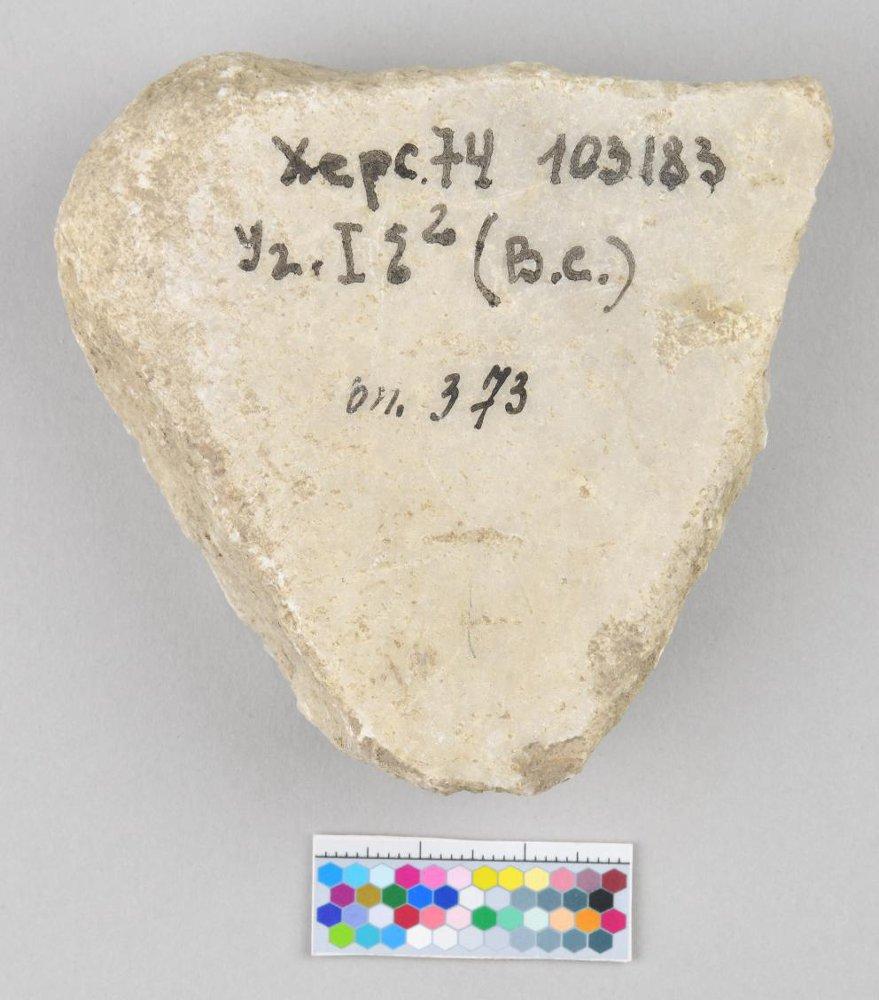 Херс. 74 103183
Уг. I ξ² (В.С.)
оп. 373